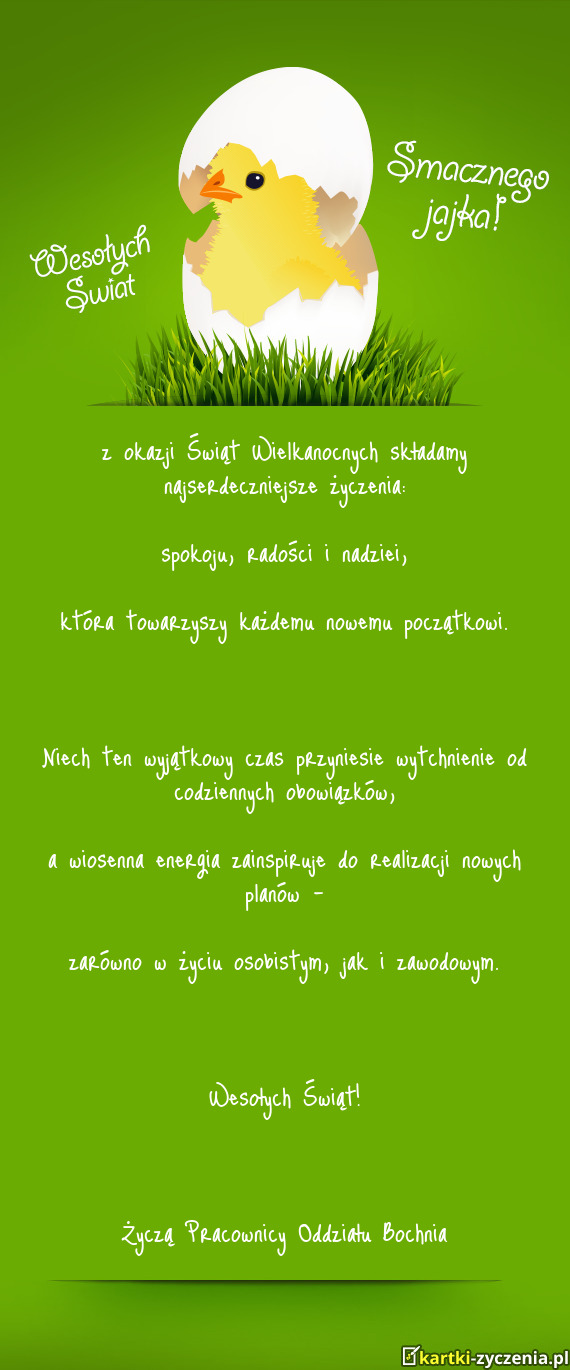 Smacznego
jajka!
Wesołych
Świat
z okazji Świąt Wielkanocnych składamy
najserdeczniejsze życzenia:
spokoju, radości i nadziei,
która towarzyszy każdemu nowemu początkowi.
Niech ten wyjątkowy czas przyniesie wytchnienie od
codziennych obowiązków,
a wiosenna energia zainspiruje do realizacji nowych
planów -
zarówno w życiu osobistym, jak i zawodowym.
Wesołych Świąt!
Życzą Pracownicy Oddziału Bochnia
kartki-zyczenia.pl